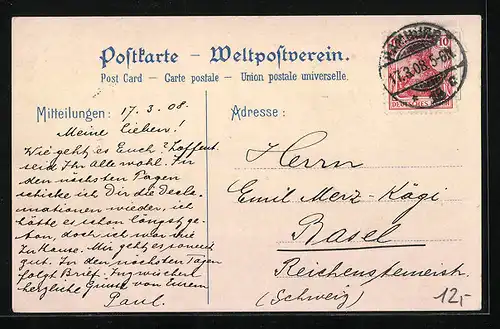 Postkarte – Weltpostverein.
Post Card – Carte postale – Union postale universelle.
Mitteilungen: 17.3.08.
Meine Lieben!
Wie geht es Euch? Hoffent.
seid Ihr Alle wohl. In
den nächsten Tagen
schicke ich Dir die Dekla-
mationen wieder, ich
hätte es schon längst ge-
tan, doch ich war nie
zu Hause. Mir geht es soweit
gut. In den nächsten Tagen
folgt Brief. Inzwischen
herzliche Grüsse von Eurem
Paul.
Adresse:
Herrn
Emil Merz-Kägi
Basel
(Schweiz)
12,-
17.3.08
10
DEUTSCHES REICH